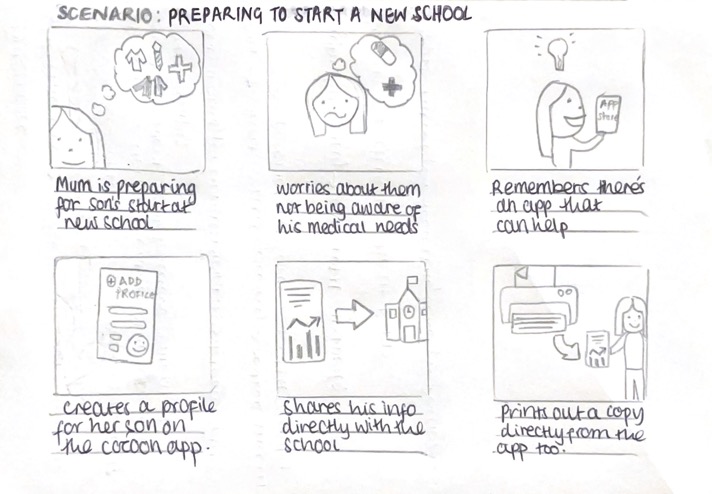 SCENARIO: PREPARING TO START A NEW SCHOOL
Mum is preparing
for son's start at
new school
worries about them
not being aware of
his medical needs
APP
Store
Remembers there's
an app that
can help
ADD
PROFILE
creates a profile
for her son on
the cocoon app.
Shares his info
directly with the
school
Prints out a copy
directly from the
app too.